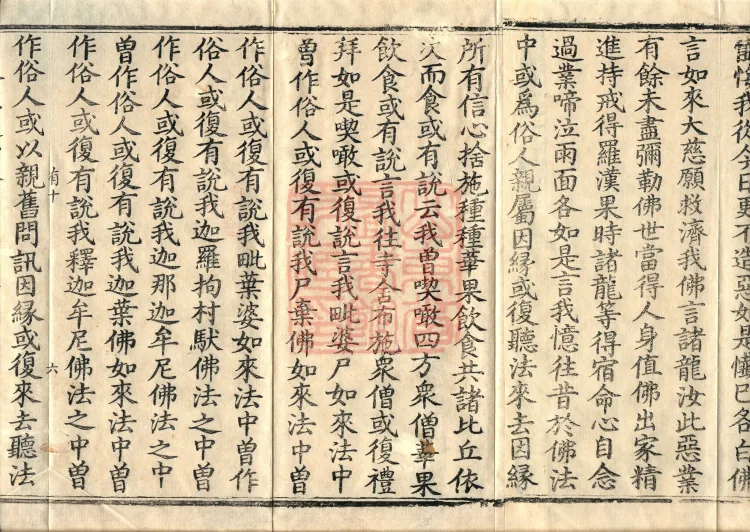 當悔我從今日更不造惡如是懺已各白佛
言如來大慈願救濟我佛言諸龍汝此惡業
有餘未盡彌勒佛世當得人身值佛出家精
進持戒得羅漢果時諸龍等得宿命心自念
過業啼泣雨面各如是言我憶往昔於佛法
中或爲俗人親屬因緣或復聽法來去因緣
所有信心捨施種種華果飲食共諸比丘依
次而食或有說云我曾喫噉四方衆僧華果
飲食或有說言我往寺舍布施衆僧或復禮
拜如是喫噉或復說言我毗婆尸如來法中
曾作俗人或復有說我尸棄佛如來法中
作俗人或復有說我毗葉婆如來法中曾作
俗人或復有說我迦羅拘村馱佛法之中曾
作俗人或復有說我迦那迦牟尼佛法之中
曾作俗人或復有說我迦葉佛如來法中曾
作俗人或復有說我釋迦牟尼佛法之中曾
六
作俗人或以親舊問訊因緣或復來去聽法